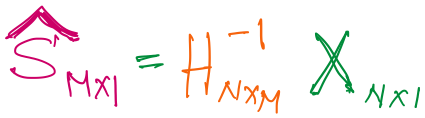 Ŝ_{M×1} = H^{-1}_{N×M} X_{N×1}